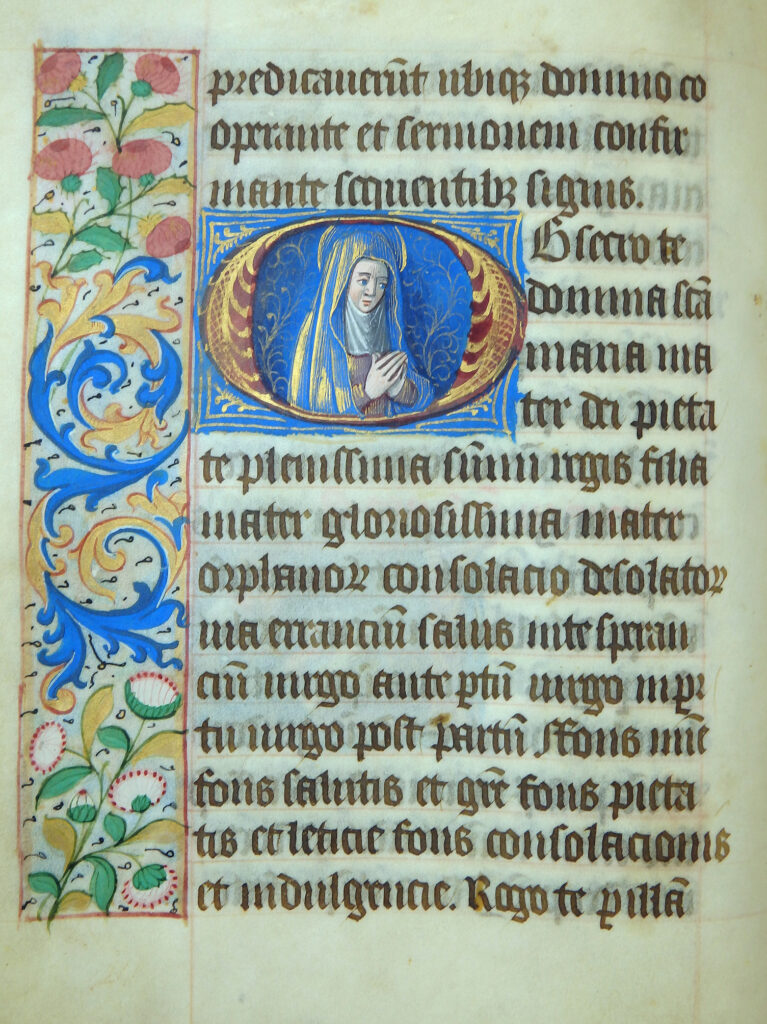 predicauerūt ubiqꝫ domino co
operante et sermonem confir
mante sequentibꝫ signis.
Obsecro te
domina scā
maria ma
ter dei pieta
te plenissima sūmi regis filia
mater gloriosissima mater
orphanoꝝ consolacio desolatoꝝ
uia erranciū salus inte speran
ciū uirgo ante ꝑtū uirgo in ꝑ
tu uirgo post partū Fons mīe
fons salutis et grē fons pieta
tis et leticie fons consolacionis
et indulgencie. Rogo te ꝑ illā